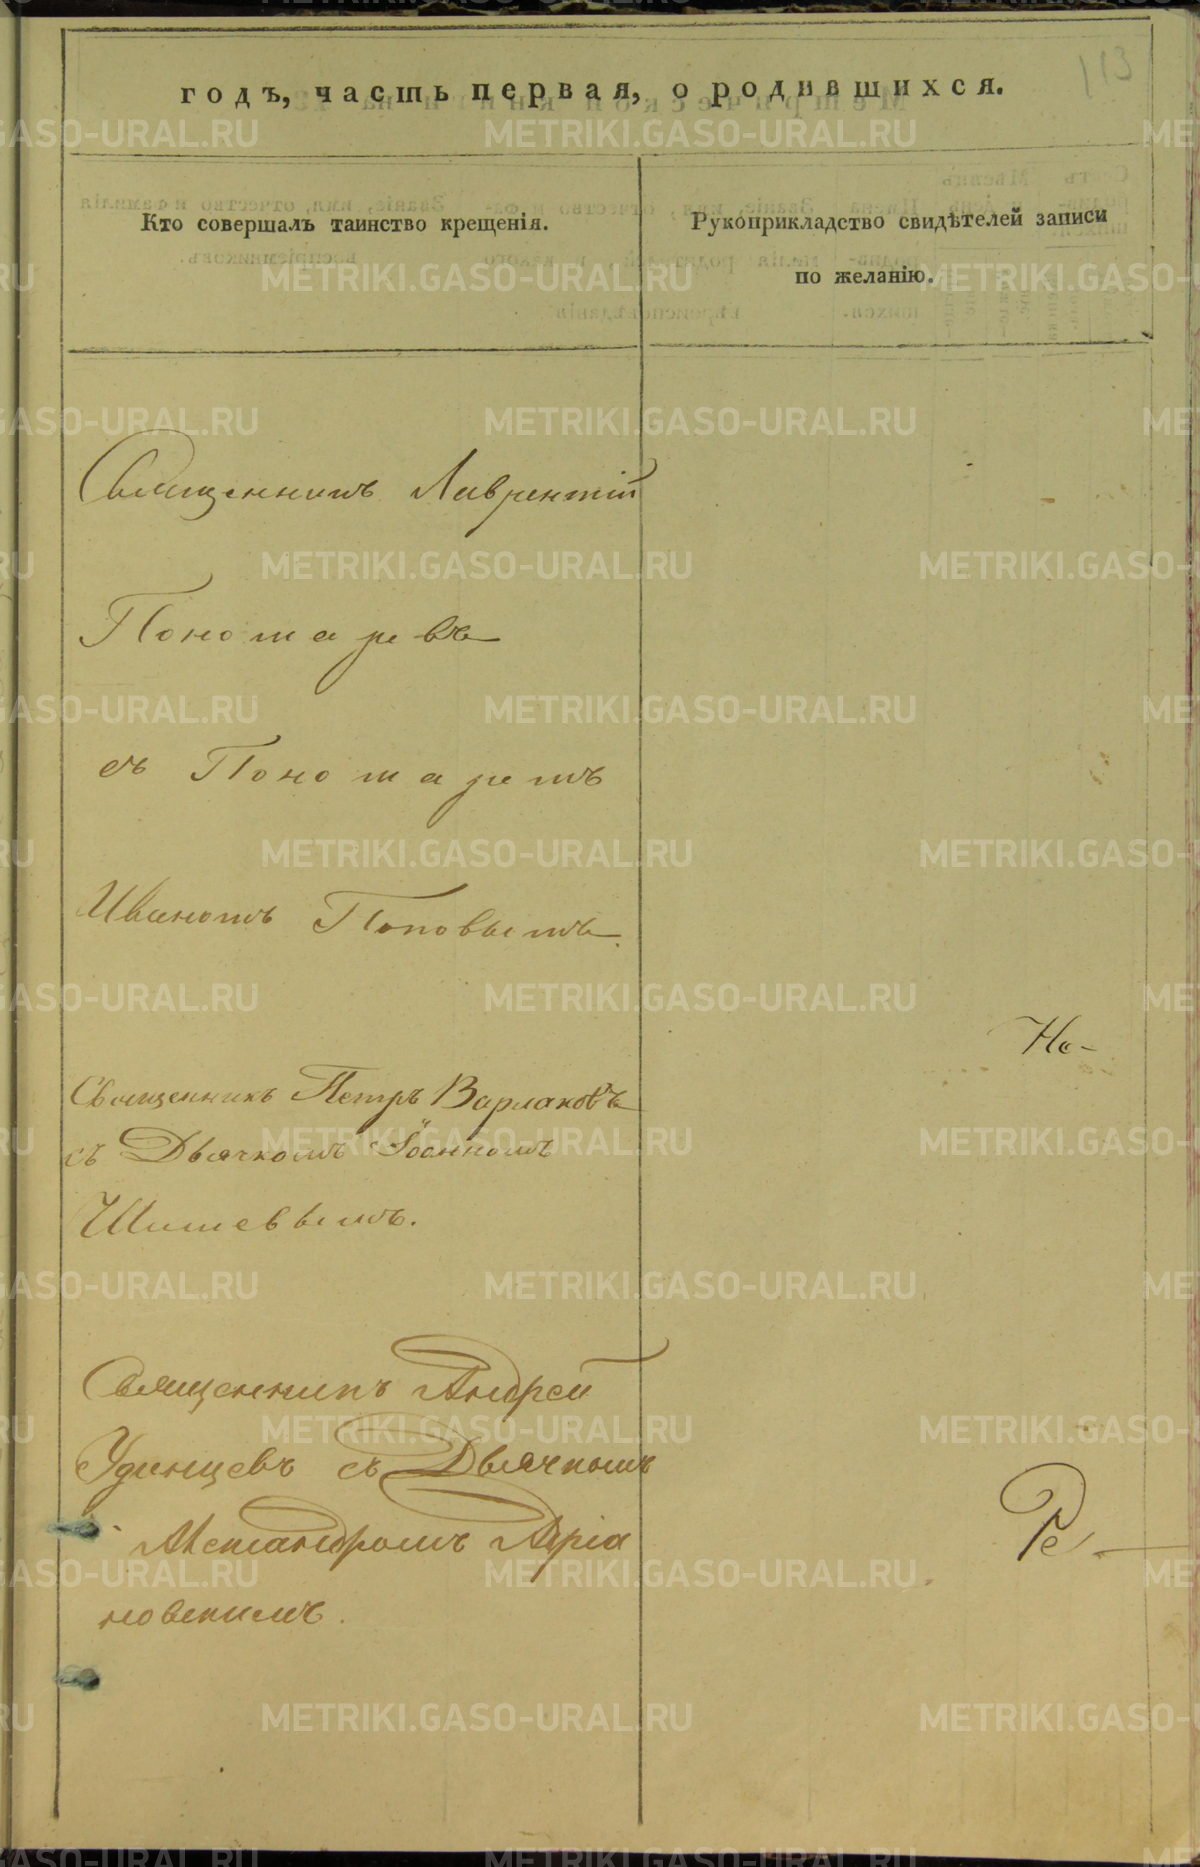 113
годъ, часть первая, о родившихся.
Кто совершалъ таинство крещенія.
Рукоприкладство свидѣтелей записи
по желанію.
Священникъ Лаврентій
Пономаревъ
съ Пономаремъ
Иваномъ Поповымъ.
Но-
Священникъ Петръ Варлаковъ
съ Дьячкомъ Іоанномъ
Шишевымъ.
Священникъ Андрей
Удинцевъ съ Дьячкомъ
Александромъ Аріа
новскимъ.
Ре-
METRIKI.GASO-URAL.RU